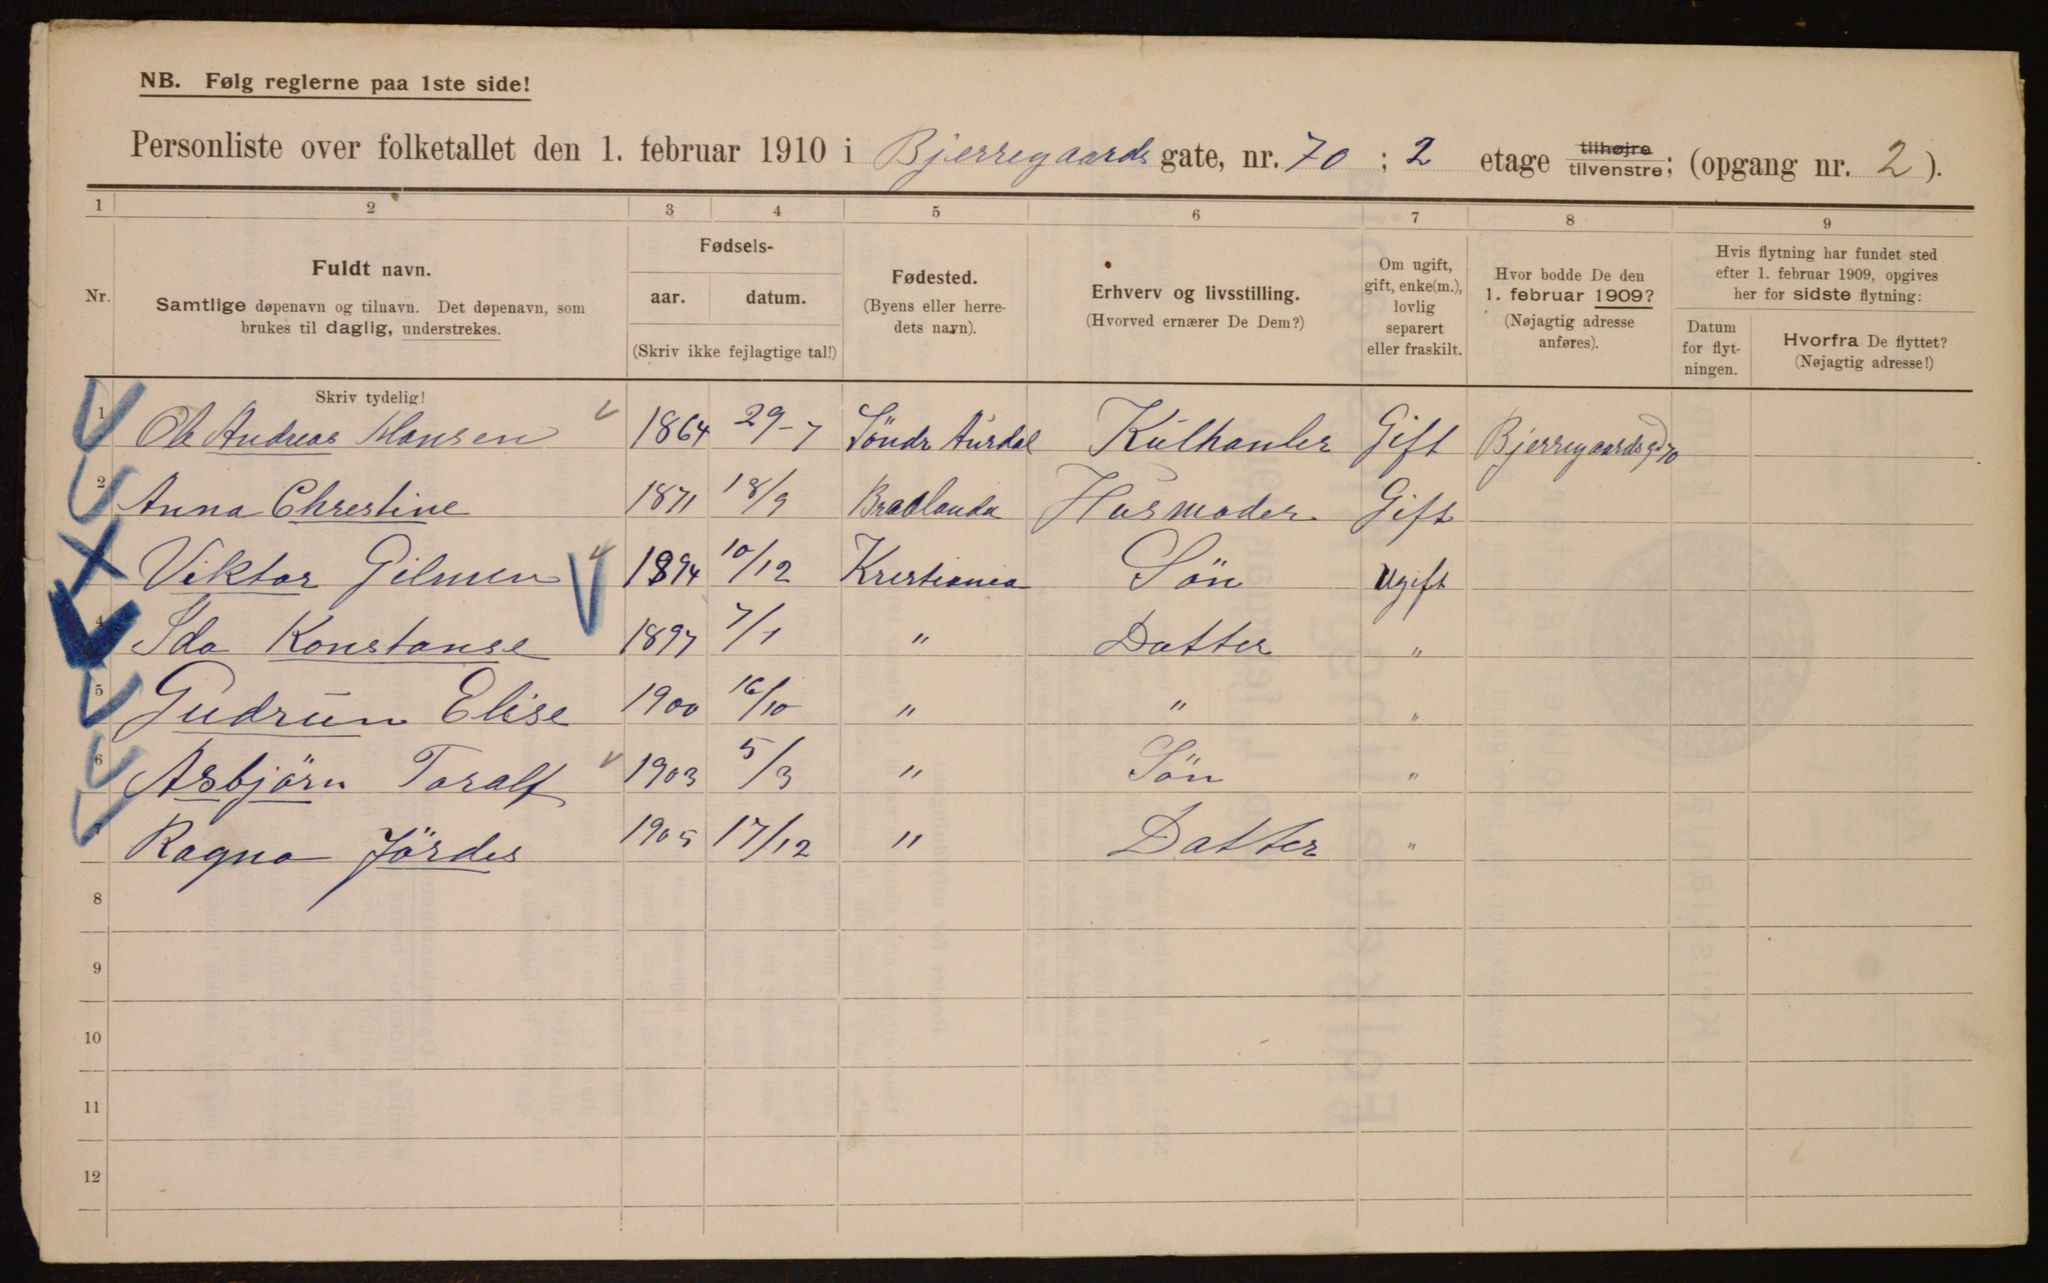 NB. Følg reglerne paa 1ste side!
Personliste over folketallet den 1. februar 1910 i Bjerregaards gate, nr. 70 ; 2 etage tilhøjre tilvenstre; (opgang nr. 2 ).
1 2 3 4 5 6 7 8 9
Nr.
Fuldt navn.
Samtlige døpenavn og tilnavn. Det døpenavn, som
brukes til daglig, understrekes.
Fødsels-
aar. datum.
(Skriv ikke fejlagtige tal!)
Fødested.
(Byens eller herre-
dets navn).
Erhverv og livsstilling.
(Hvorved ernærer De Dem?)
Om ugift,
gift, enke(m.),
lovlig
separert
eller fraskilt.
Hvor bodde De den
1. februar 1909?
(Nøjagtig adresse
anføres).
Hvis flytning har fundet sted
efter 1. februar 1909, opgives
her for sidste flytning:
Datum
for flyt-
ningen.
Hvorfra De flyttet?
(Nøjagtig adresse!)
Skriv tydelig!
1 Ole Andreas Hansen 1864 29-7 Söndr Aurdal Kulhanler Gift Bjerregaardsgd 70
2 Anna Chrestine 1871 18/9 Husmoder Gift
Viktor Gilmen 1894 10/12 Kristiania Sön Ugift
4 Ida Konstanse 1897 7/1 " Datter "
5 Gudrun Elise 1900 16/10 " " "
6 Asbjörn Toralf 1903 5/3 " Sön "
7 Ragna Jördes 1905 17/12 " Datter "
8
9
10
11
12